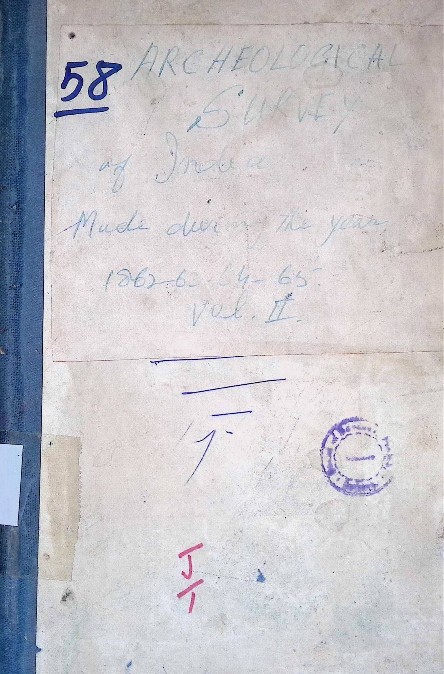 58
ARCHEOLOGICAL
SURVEY
of India
Made during the years
1862-6 -64-65.
Vol. II.
J
1